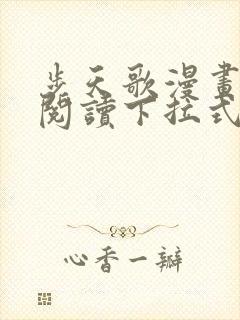 步天歌漫畫
閱讀下拉式
心香一瓣